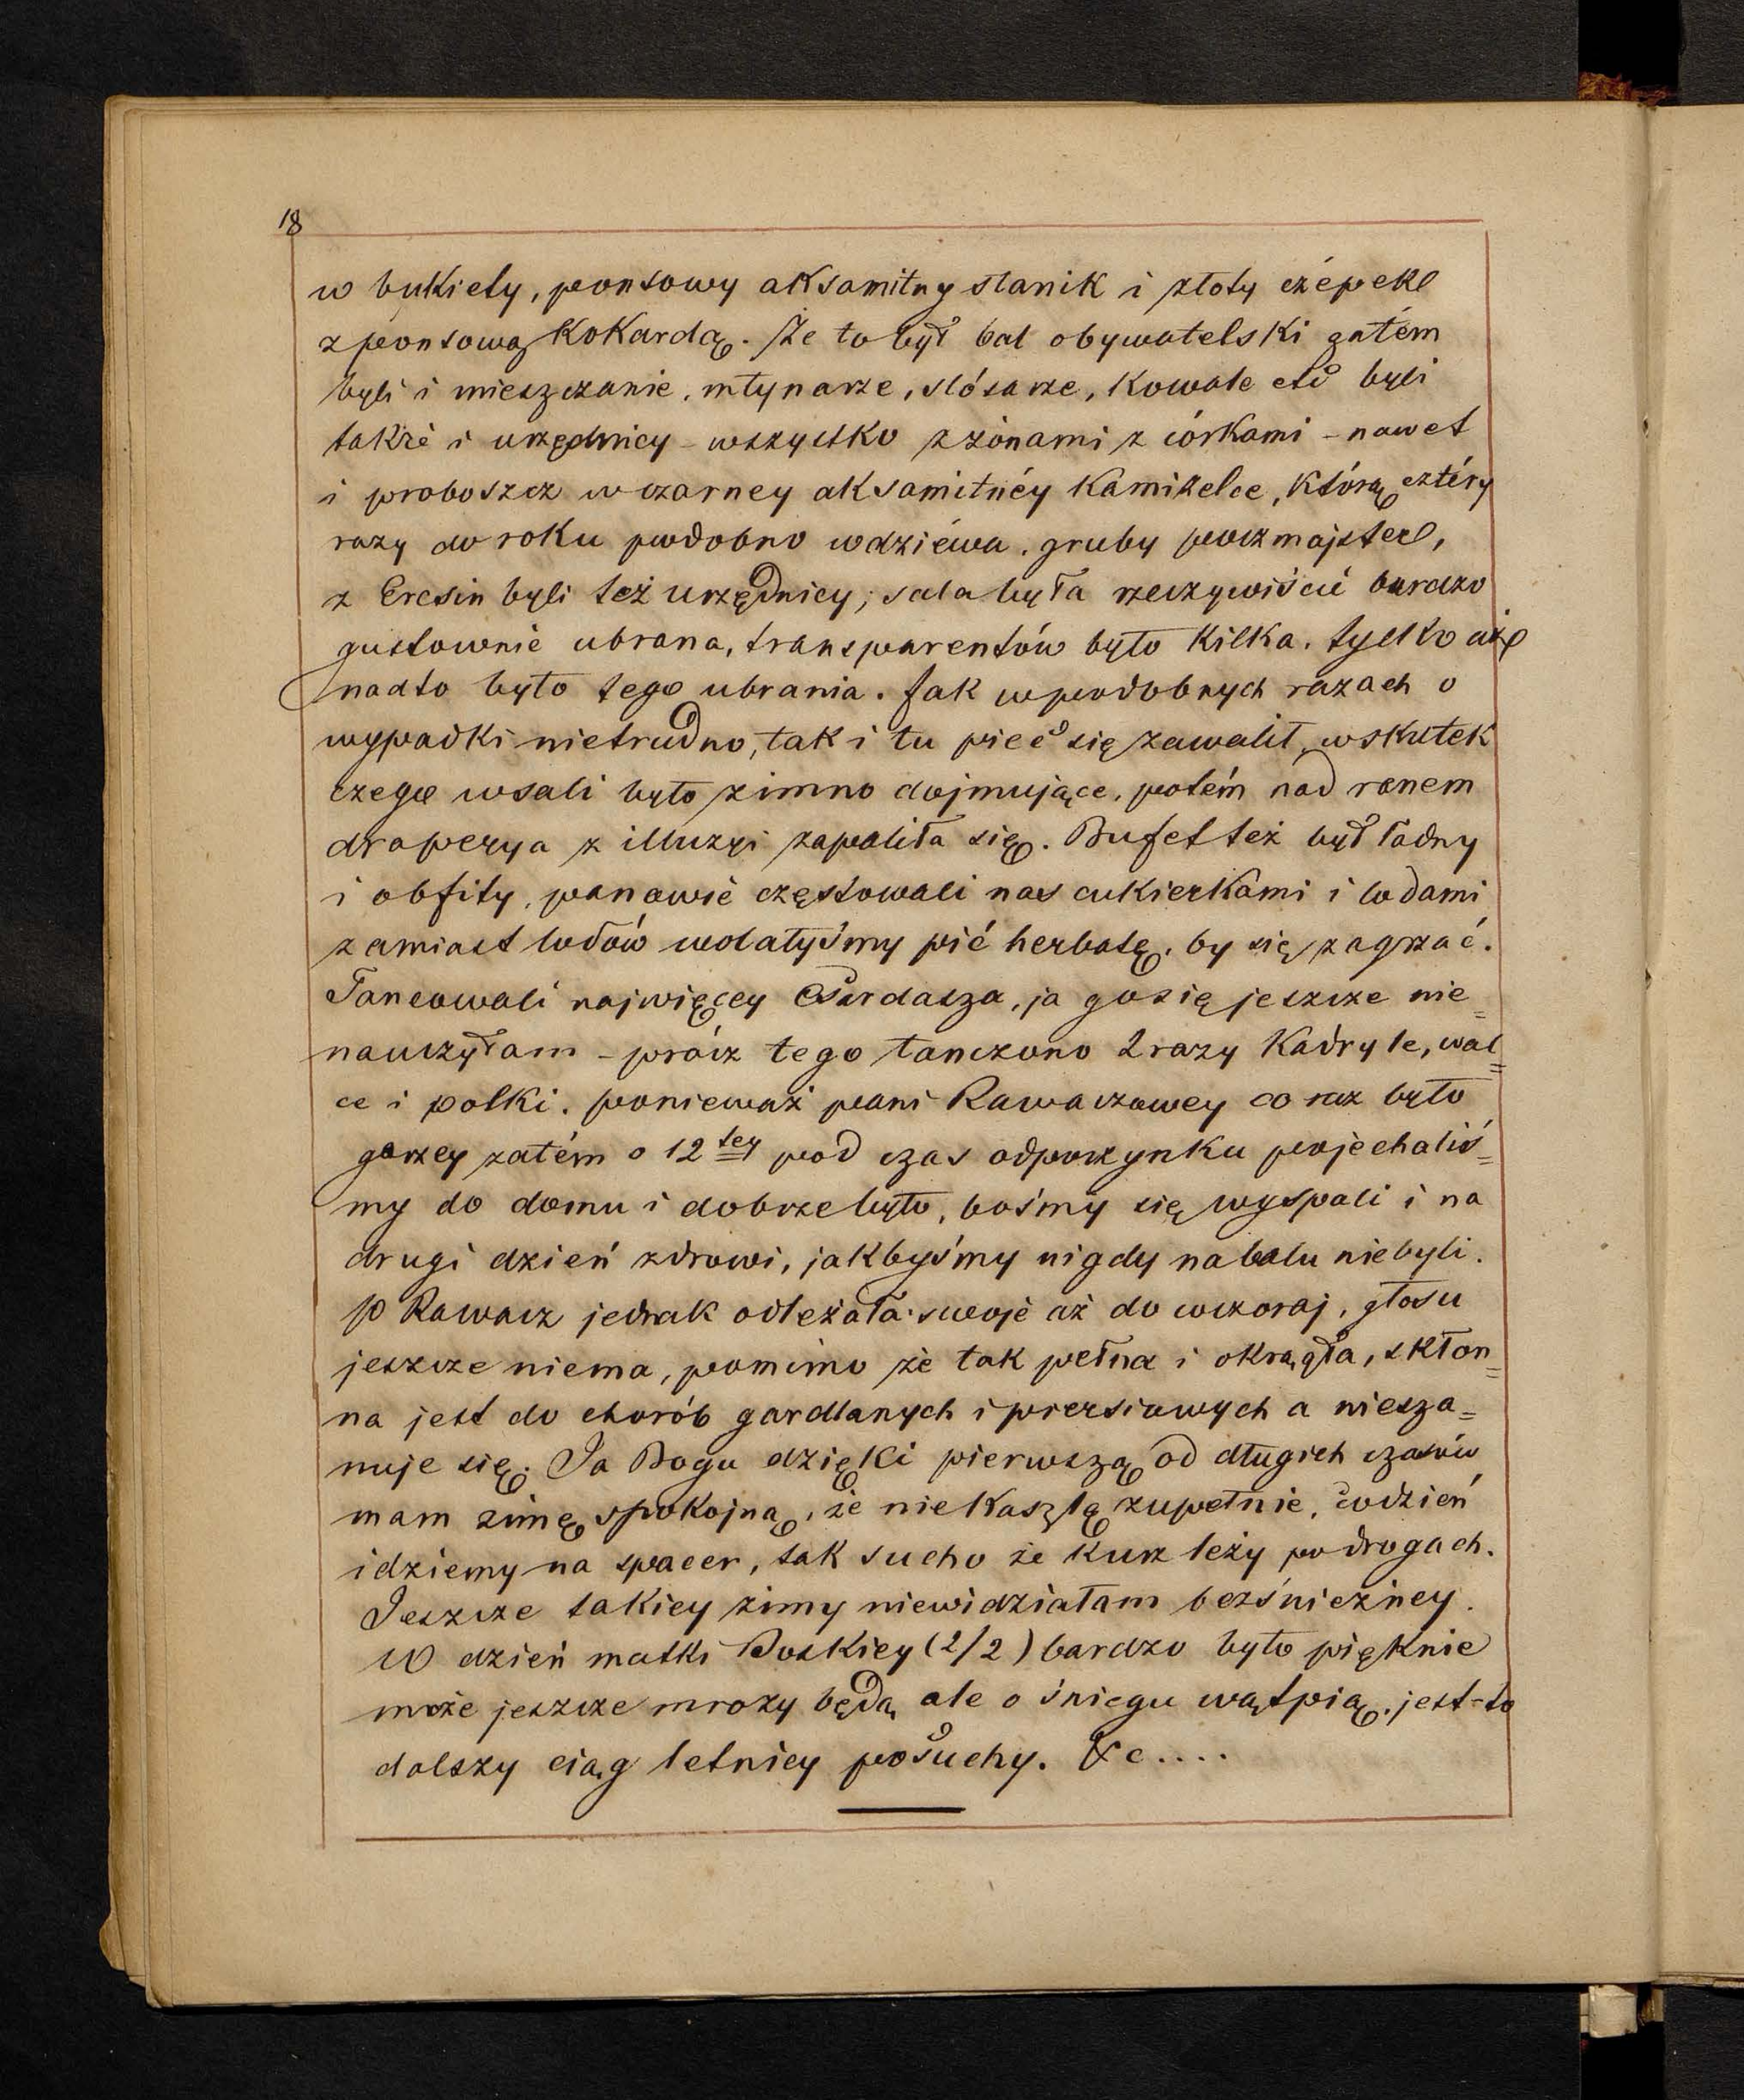 18
w bukiety, ponsowy aksamitny stanik i złoty czépek
z ponsową kokardą. Że to był bal obywatelski zatém
byli i mieszczanie, młynarze, slósarze, kowale etc byli
także i urzędnicy – wszystko z żonami z córkami – nawet
i proboszcz w czarney aksamitnéy kamizelce, którą cztéry
razy do roku podobno wdziéwa, gruby poczmajster,
z Eresin byli też urzędnicy; sala była rzeczywiście bardzo
gustownie ubrana, transparentów było kilka, tylko aż
nadto było tego ubrania. Jak w podobnych razach o
wypadki nietrudno, tak i tu piec się zawalił, wskutek
czego w sali było zimno dojmujące, potém nad ranem
draperya z illuzyi zapaliła się. Bufet też był ładny
i obfity, panowie częstowali nas cukierkami i lodami
zamiast lodów wolałyśmy pić herbatę, by się zagrzać.
Tancowali najwięcey Csardasza, ja go się jeszcze nie=
nauczyłam – prócz tego tanczono 2 razy Kadryle, wal=
ce i polki. ponieważ pani Rawaczowey co raz było
gorzey zatém o 12tey pod czas odpoczynku pojechaliś=
my do domu i dobrze było, bośmy się wyspali i na
drugi dzień zdrowi, jakbyśmy nigdy na balu niebyli.
P Rawacz jednak odleżała swoje aż do wczoraj, głosu
jeszcze niema, pomimo że tak pełna i okrągła, skłon=
na jest do chorób gardlanych i piersiowych a niesza=
nuje się. Ja Bogu dzięki pierwszą od długich czasów
mam zimę spokojną, że niekaszlę zupełnie, codzień
idziemy na spacer, tak sucho że kurz leży po drogach.
Jeszcze takiey zimy niewidziałam bezśnieżney.
W dzień matki Boskiey (2/2) bardzo było pięknie
może jeszcze mrozy będą, ale o śniegu wątpią. jest-to
dalszy ciąg letniey posuchy. &c....